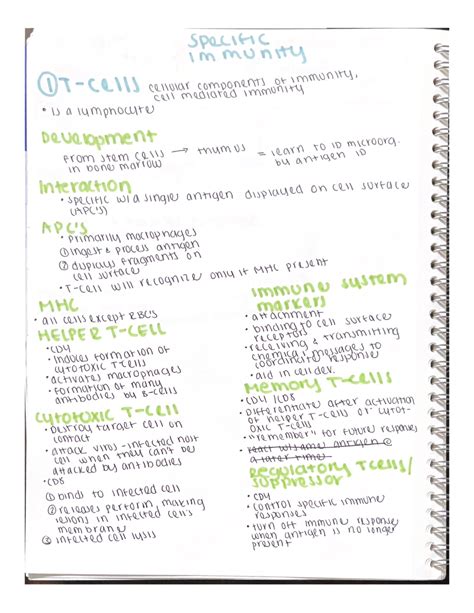 specific
immunity
① T-cells cellular components of immunity,
cell mediated immunity
• is a lymphocyte
Development
from stem cells → thymus = learn to ID microorg.
in bone marrow by antigen ID
Interaction
• specific w/ a single antigen displayed on cell surface
(APC's)
APC's
• primarily macrophages
① ingest & process antigen
② displays fragments on
cell surface
• T-cell will recognize only if MHC present
MHC
• all cells except RBC's
HELPER T-CELL
• CD4
• induces formation of
cytotoxic T-cells
• activates macrophages
• formation of many
antibodies by B-cells
cytotoxic T-cell
• destroy target cell on
contact
• attack virus-infected host
cell when they can't be
attacked by antibodies
• CD8
① bind to infected cell
② release perforin, making
lesions in infected cells
membrane
③ infected cell lysis
immune system
markers
• attachment
• binding to cell surface
receptors
• receiving & transmitting
chemical messages to
coordinate response
• aid in cell dev.
Memory T-cells
• CD4 / CD8
• Differentiate after activation
of helper T-cells or cytot-
oxic T-cells
• "remember" for future responses
• react w/ same antigen @
a later time
Regulatory T cells/
suppressor
• CD4
• control specific immune
responses
• turn off immune response
when antigen is no longer
present